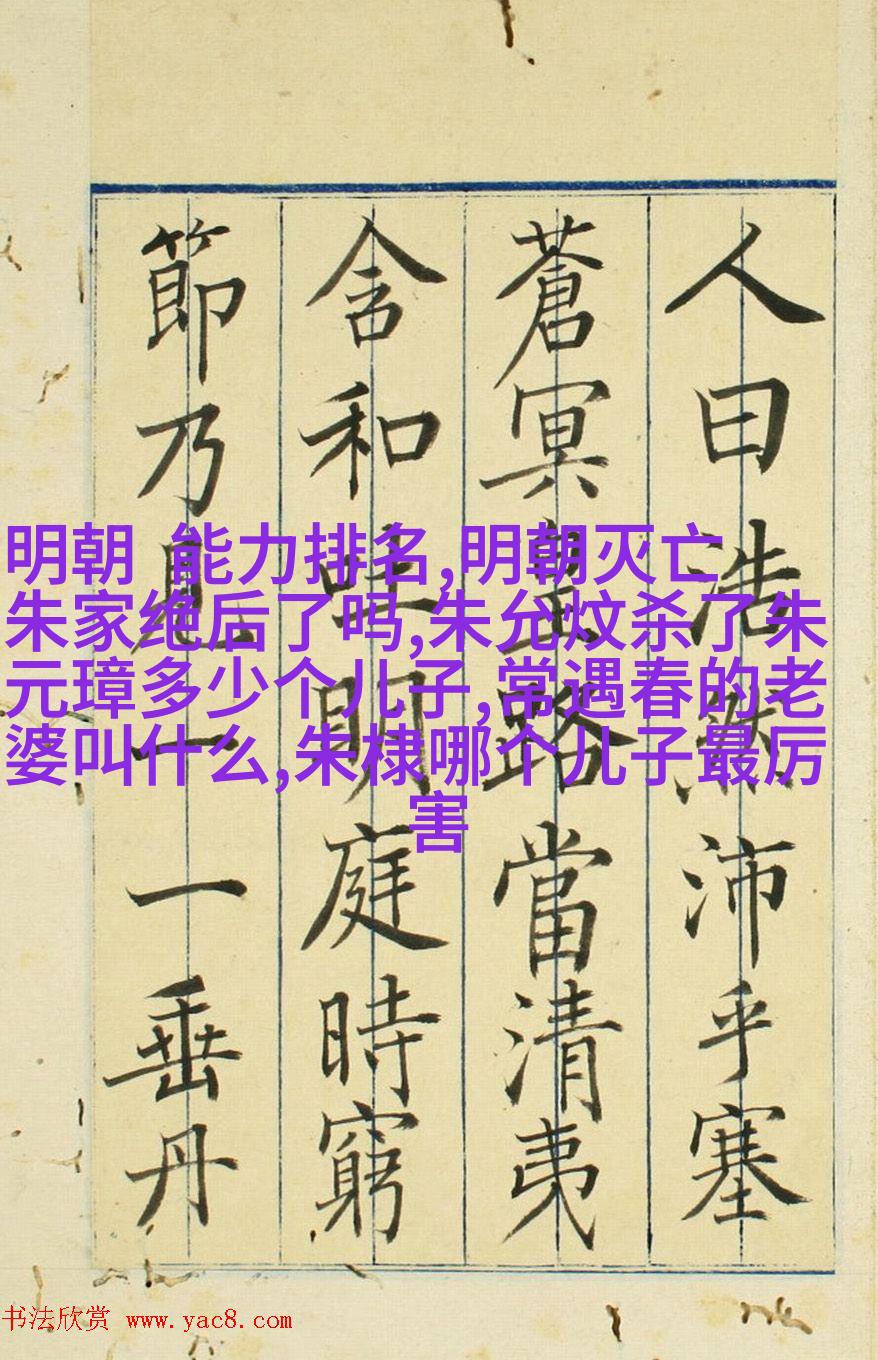 人曰浩然沛乎塞
蒼冥皇路當清夷
含和吐明庭時窮
節乃見一一垂丹
明朝 能力排名,明朝灭亡
朱家绝后了吗,朱允炆杀了朱
元璋多少个儿子,常遇春的老
婆叫什么,朱棣哪个儿子最厉
害
书法欣赏 www.yac8.com